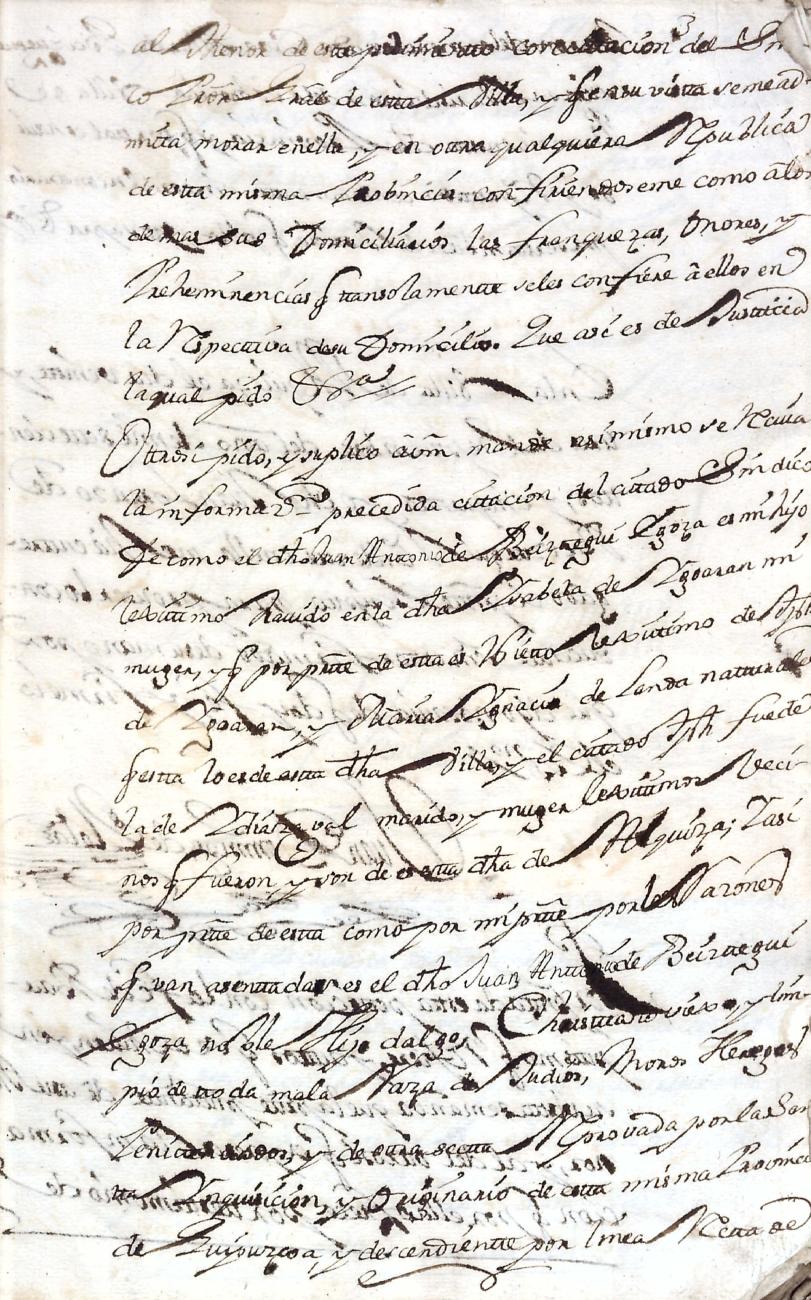 al thenor de este pedimento con citacion del Sin
co Pror Gral de esta Villa, y q en su vista se me ad
mita morar en ella, y en otra qualquiera Republica
de esta misma Probincia confiriendoseme como a los
demas sus Domiciliarios las franquezas, Onores, y
Preheminencias q tan solamente se les confiere â ellos en
la Respectiva de su Domicilio. Que asi es de Justicia
la qual pido &ª
Otrosi pido, y suplico â vm mande asimismo se Reciva
la informaon precedida cittacion del cittado Sindico
de como el dho Juan Antonio de Beiztegui Egoza es mi hijo
lexitimo havido en la dha Ysabela de Ygoaran mi
muger, y q por prte de esta es Nieto lexitimo de Jph
de Ygoaran, y Maria Ygnacia de Landa naturales
q esta lo es de esta dha Villa, y el cittado Jph fue de
la de marido, y muger lexitimos Veci
nos q fueron y son de esta dha de Alquiza; Y asi
por prte de esta como por mi prte por los Varones
q van asentados es el dho Juan Antonio de Beiztegui
Egoza noble Hijo dalgo, Christiano viejo, y lim
pio de toda mala Raza de Judios, Moros Hereges
Penitenciados, y de otra secta Reprovada por la San
ta Ynquisicion, y Originario de esta misma Provincia
de Guipuzcoa, y descendiente por linea Recta de